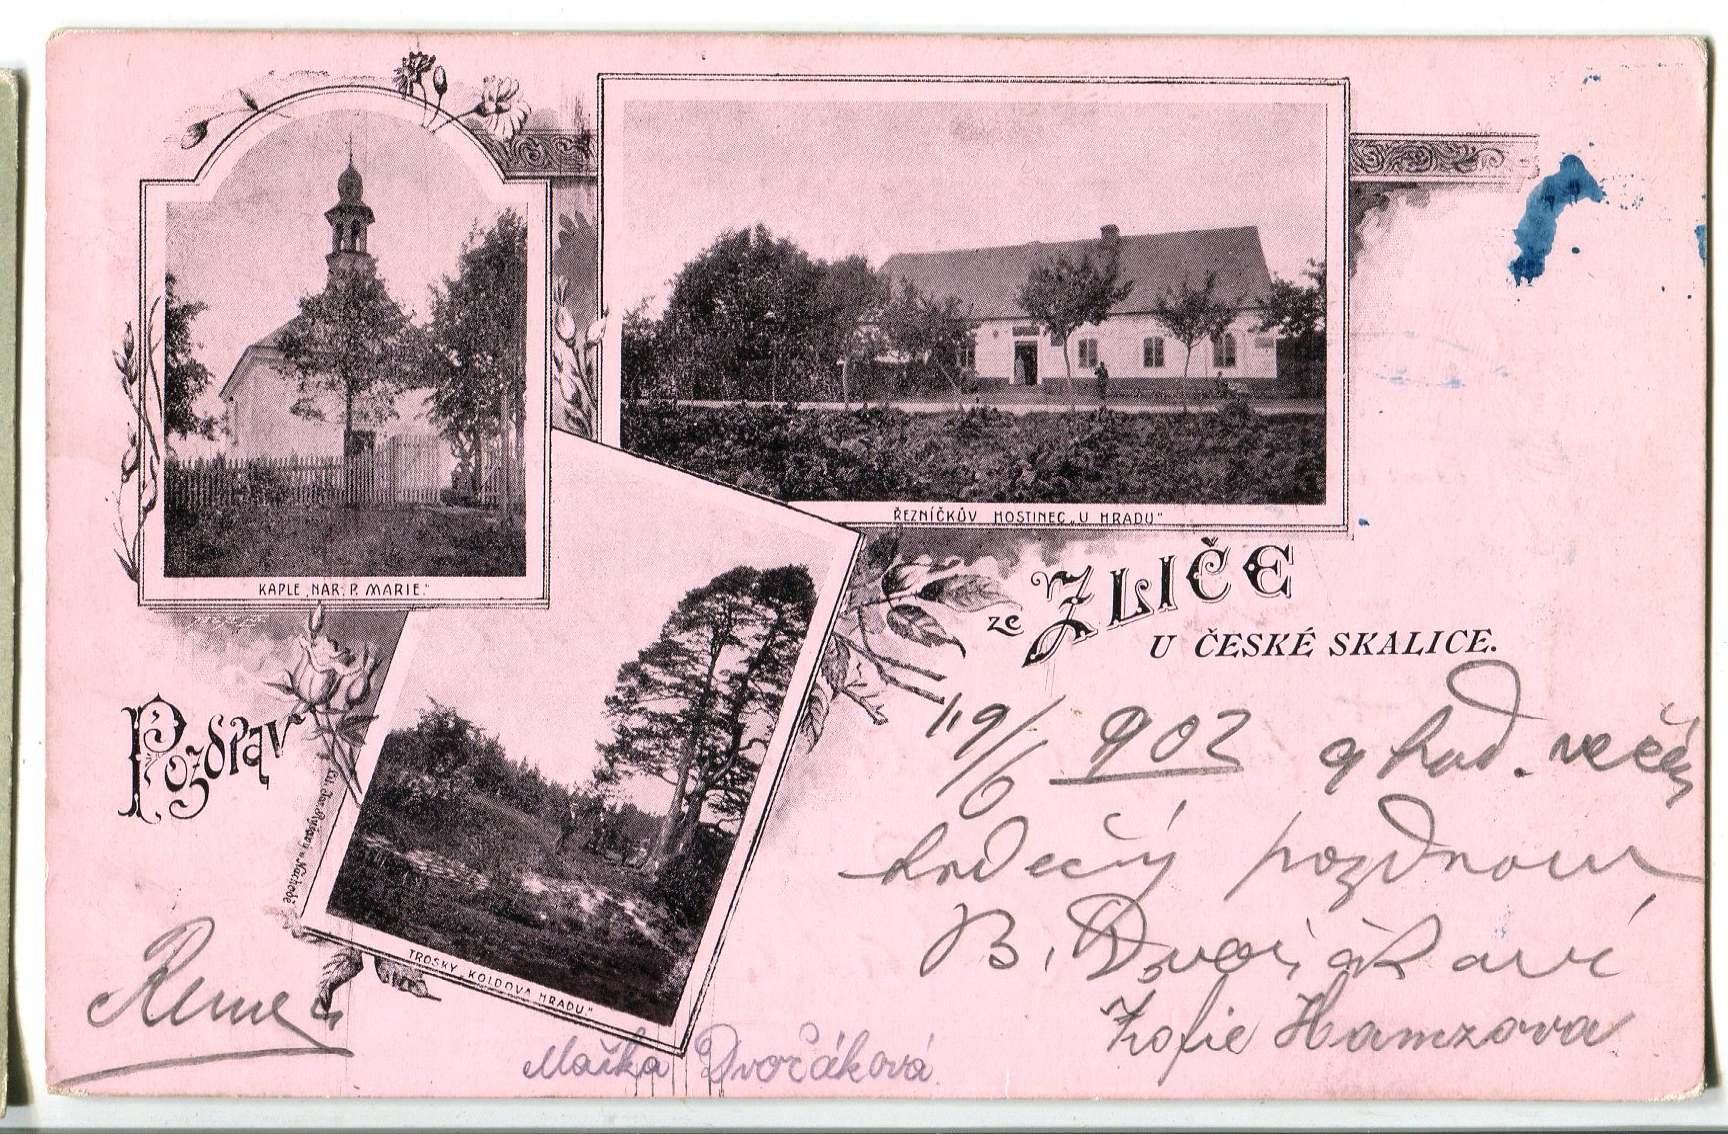 KAPLE „NAR. P. MARIE."
ŘEZNÍČKŮV HOSTINEC „U HRADU"
ze ZLIČE
U ČESKÉ SKALICE.
Pozdrav
TROSKY „KOLDOVA HRADU."
19/6 902 9 hod. večer
srdečný pozdrav
B. Dvořákovi
Žofie Hamzova
Mařka Dvořáková